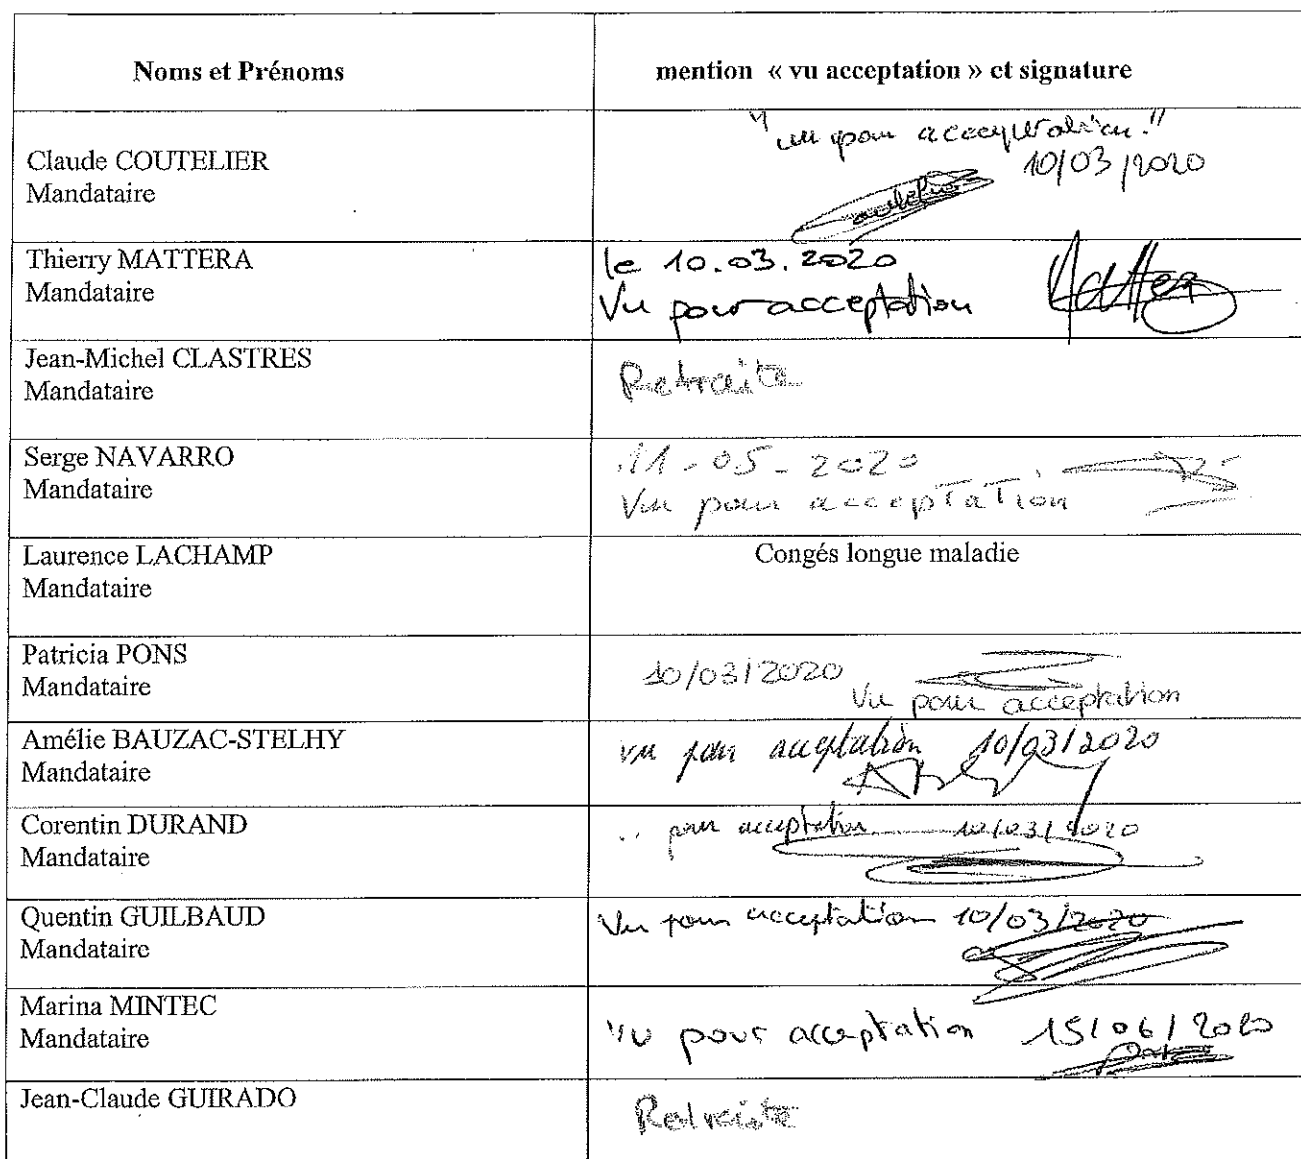 Noms et Prénoms
mention « vu acceptation » et signature
Claude COUTELIER
Mandataire
"vu pour acceptation."
10/03/2020
Thierry MATTERA
Mandataire
le 10.03.2020
Vu pour acceptation
Jean-Michel CLASTRES
Mandataire
Retraite
Serge NAVARRO
Mandataire
11-05-2020
Vu pour acceptation
Laurence LACHAMP
Mandataire
Congés longue maladie
Patricia PONS
Mandataire
10/03/2020
Vu pour acceptation
Amélie BAUZAC-STELHY
Mandataire
vu pour acceptation 10/03/2020
Corentin DURAND
Mandataire
pour acceptation 10/03/2020
Quentin GUILBAUD
Mandataire
Vu pour acceptation 10/03/2020
Marina MINTEC
Mandataire
Vu pour acceptation 15/06/2020
Jean-Claude GUIRADO
Retraite